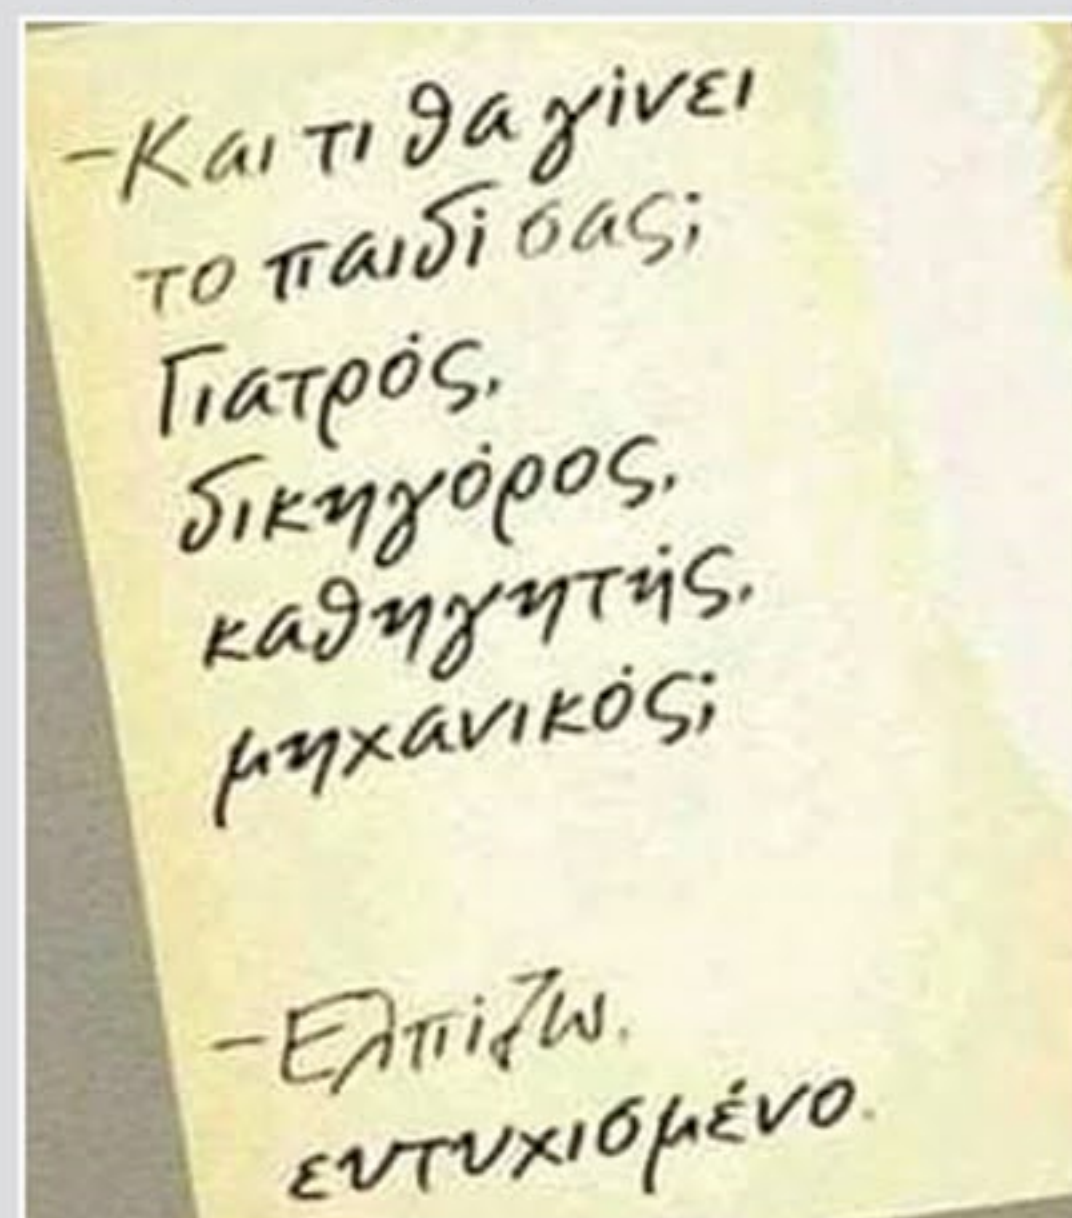 -Και τι θα γίνει
το παιδί σας;
Γιατρός,
δικηγόρος,
καθηγητής,
μηχανικός;
-Ελπίζω,
ευτυχισμένο.